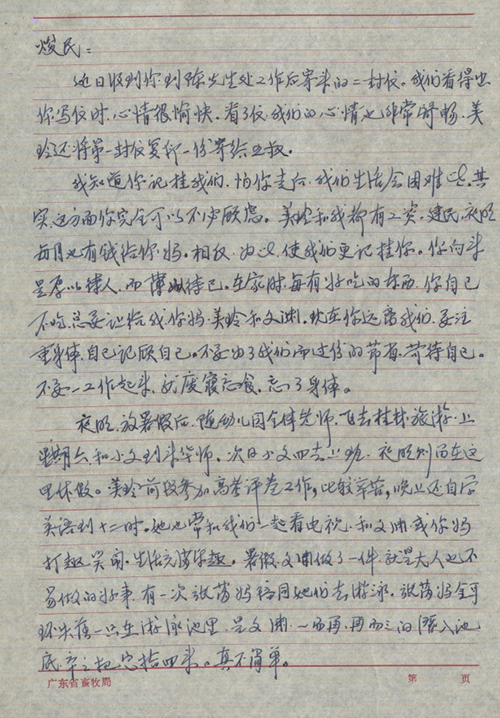 焌民：
近日收到你到陈先生处工作后寄来的二封信。我们看得出
你写信时，心情很愉快。看了信，我们的心情也非常舒畅。美
玲还将第一封信复印一份寄给五叔。
我知道你记挂我们，怕你走后，我们生活会困难些。其
实这方面你完全可以不必顾虑。美玲和我都有工资，建民、夜明
每月也有钱给你妈。相反，由此使我们更记挂你。你向来
是厚以待人，而薄以待己。在家时，每有好吃的东西，你自己
不吃，总要让给我、你妈、美玲和文渊。现在你远离我们，要注
重身体，自己记顾自己。不要为了我们而过份的节省，苛待自己。
不要一工作起来，就废寝忘食，忘了身体。
夜明放暑假后，随幼儿园全体老师，飞去桂林旅游。上
星期六和小文到来华师，次日小文回去上班，夜明则留在这
里休假。美玲前段参加高考评卷工作，比较辛苦，晚上还自学
英语到十二时。她也常和我们一起看电视，和文渊或你妈
打趣笑闹，生活充满乐趣。暑假，文渊做了一件就是大人也不
易做的好事，有一次张薇妈妈同她们去游泳，张薇妈金耳
环失落一只在游泳池里，是文渊，一而再，再而三的潜入池
底，卒之把它拾回来。真不简单。
广东省畜牧局 第 页